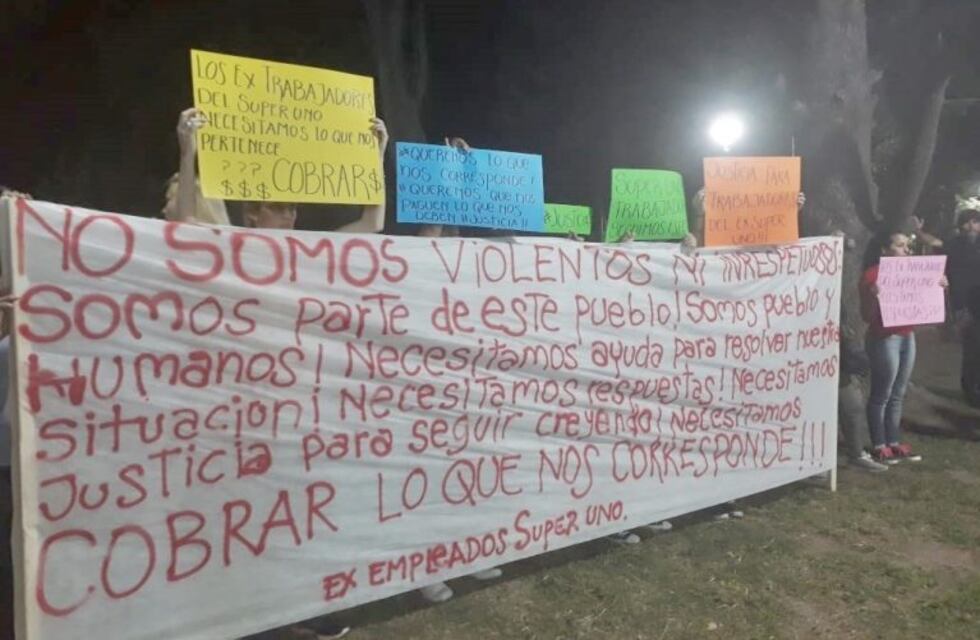 LOS EX TRABAJADORES
DEL SUPER UNO
NECESITAMOS LO QUE NOS
PERTENECE
??? COBRAR$
$$$
#QUEREMOS LO QUE
NOS CORRESPONDE!
#QUEREMOS QUE NOS
PAGUEN LO QUE NOS
DEBEN !!JUSTICIA!!
#JUSTICIA
SUPER UNO
TRABAJADORES
JUSTICIA PARA
TRABAJADORES
DEL EX SUPER
UNO!!!
DEL SUPER UNO
NO SOMOS VIOLENTOS NI INRESPETUOSOS:
SOMOS PARTE DE ESTE PUEBLO! SOMOS PUEBLO Y
HUMANOS! NECESITAMOS AYUDA PARA RESOLVER NUESTRA
SITUACION! NECESITAMOS RESPUESTAS! NECESITAMOS
JUSTICIA PARA SEGUIR CREYENDO! NECESITAMOS
COBRAR LO QUE NOS CORRESPONDE!!!
EX EMPLEADOS SUPER UNO.